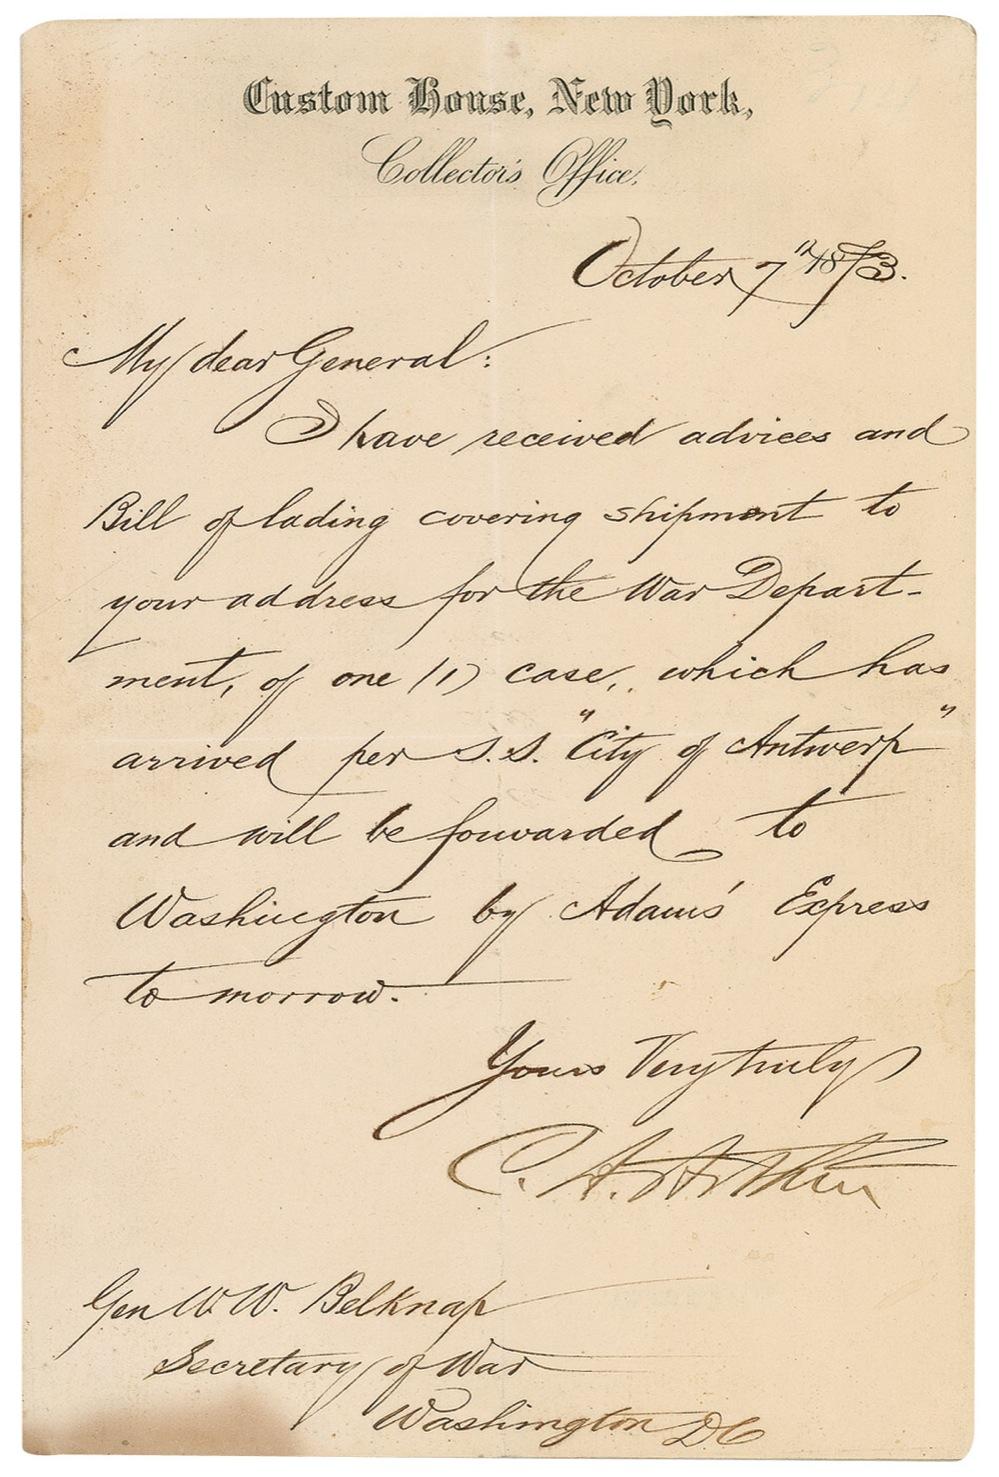 Custom House, New York,
Collector's Office.
October 7th 1873.
My dear General:
I have received advices and
Bill of lading covering shipment to
your address for the War Depart-
ment, of one (1) case, which has
arrived per S.S. "City of Antwerp"
and will be forwarded to
Washington by Adams' Express
to morrow.
Yours Very truly
C. A. Arthur
Gen W. W. Belknap
Secretary of War
Washington DC